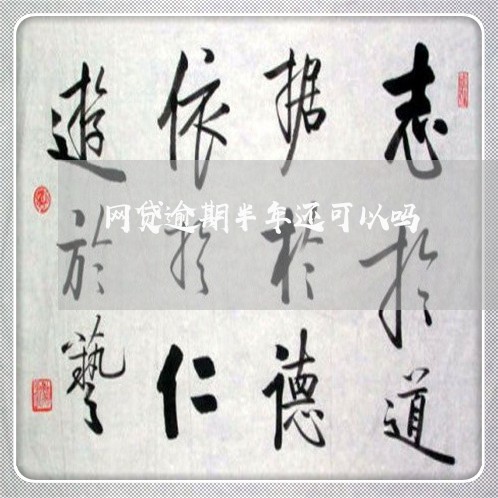 志於道
据於德
依於仁
遊於藝
网贷逾期半年还可以吗